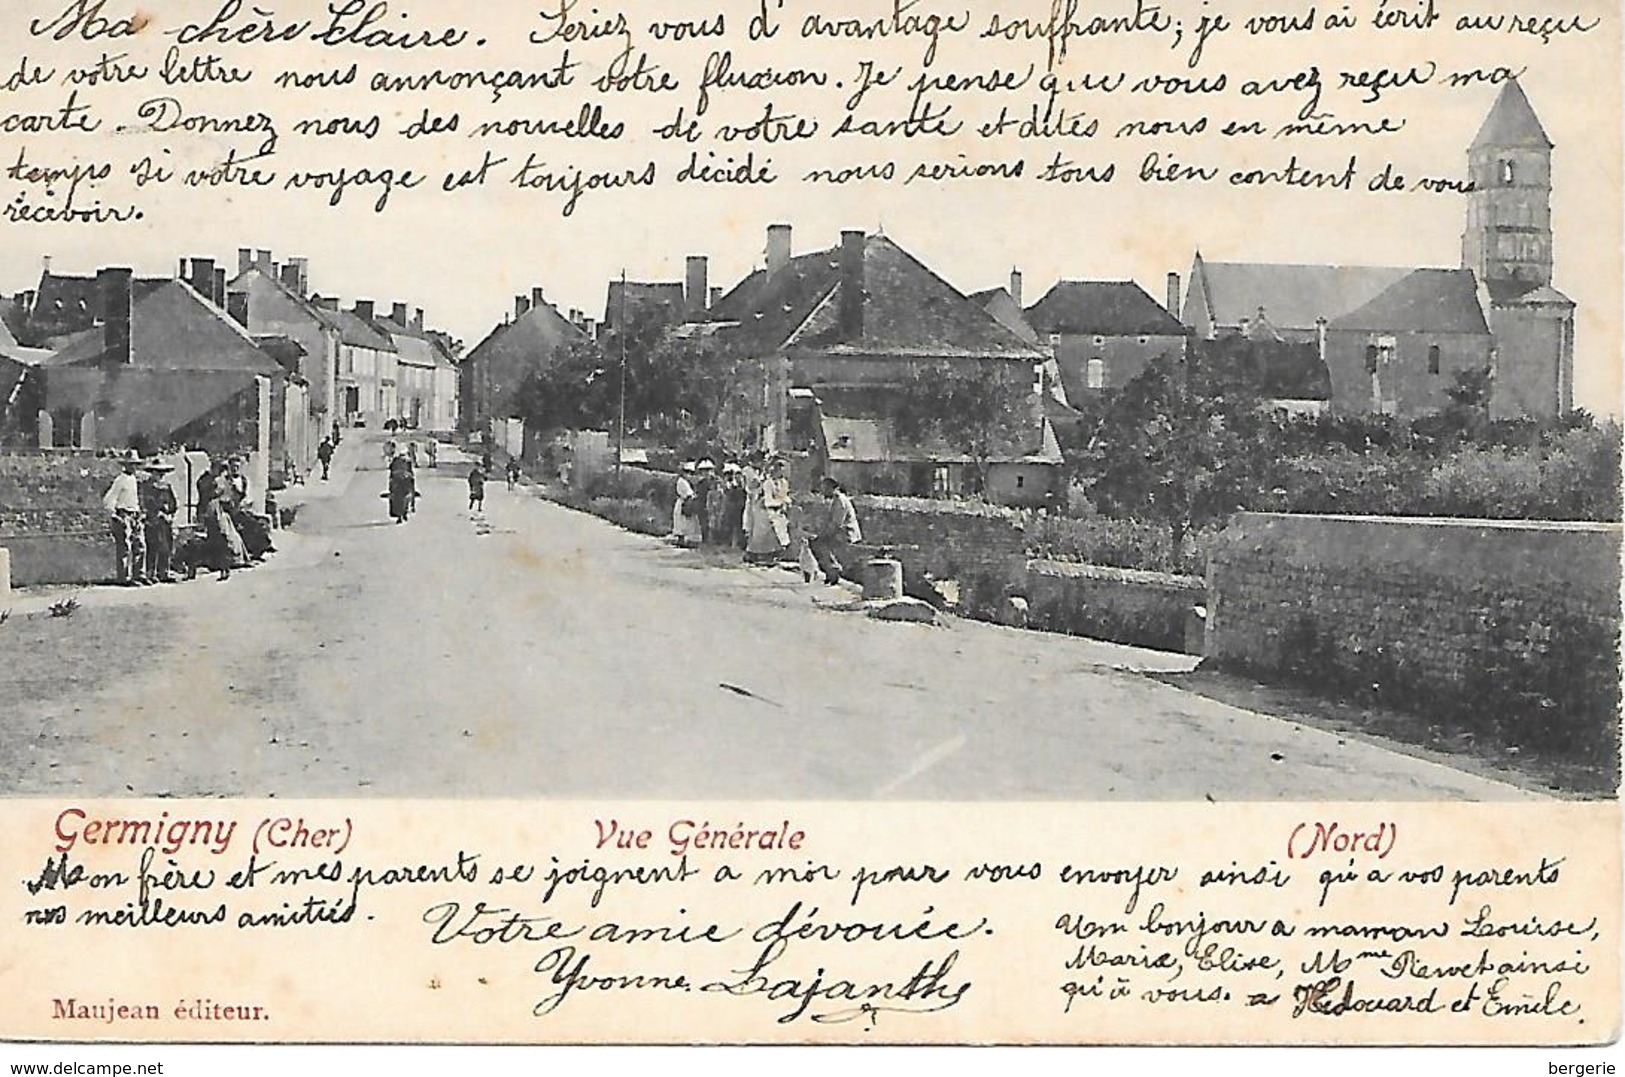 Ma chère Claire. Seriez vous d'avantage souffrante; je vous ai écrit au reçu
de votre lettre nous annonçant votre fluxion. Je pense que vous avez reçu ma
carte. Donnez nous des nouvelles de votre santé et dites nous en même
temps si votre voyage est toujours décidé nous serions tous bien content de vous
recevoir.
Germigny (Cher) Vue Générale (Nord)
Mon frère et mes parents se joignent a moi pour vous envoyer ainsi qu'a vos parents
nos meilleurs amitiés.
Votre amie dévouée.
Yvonne Lajanthe
Un bonjour a maman Louise,
Maria, Elise, Mme ainsi
qu'à vous. a Hedouard et Emile.
Maujean éditeur.
www.delcampe.net
bergerie